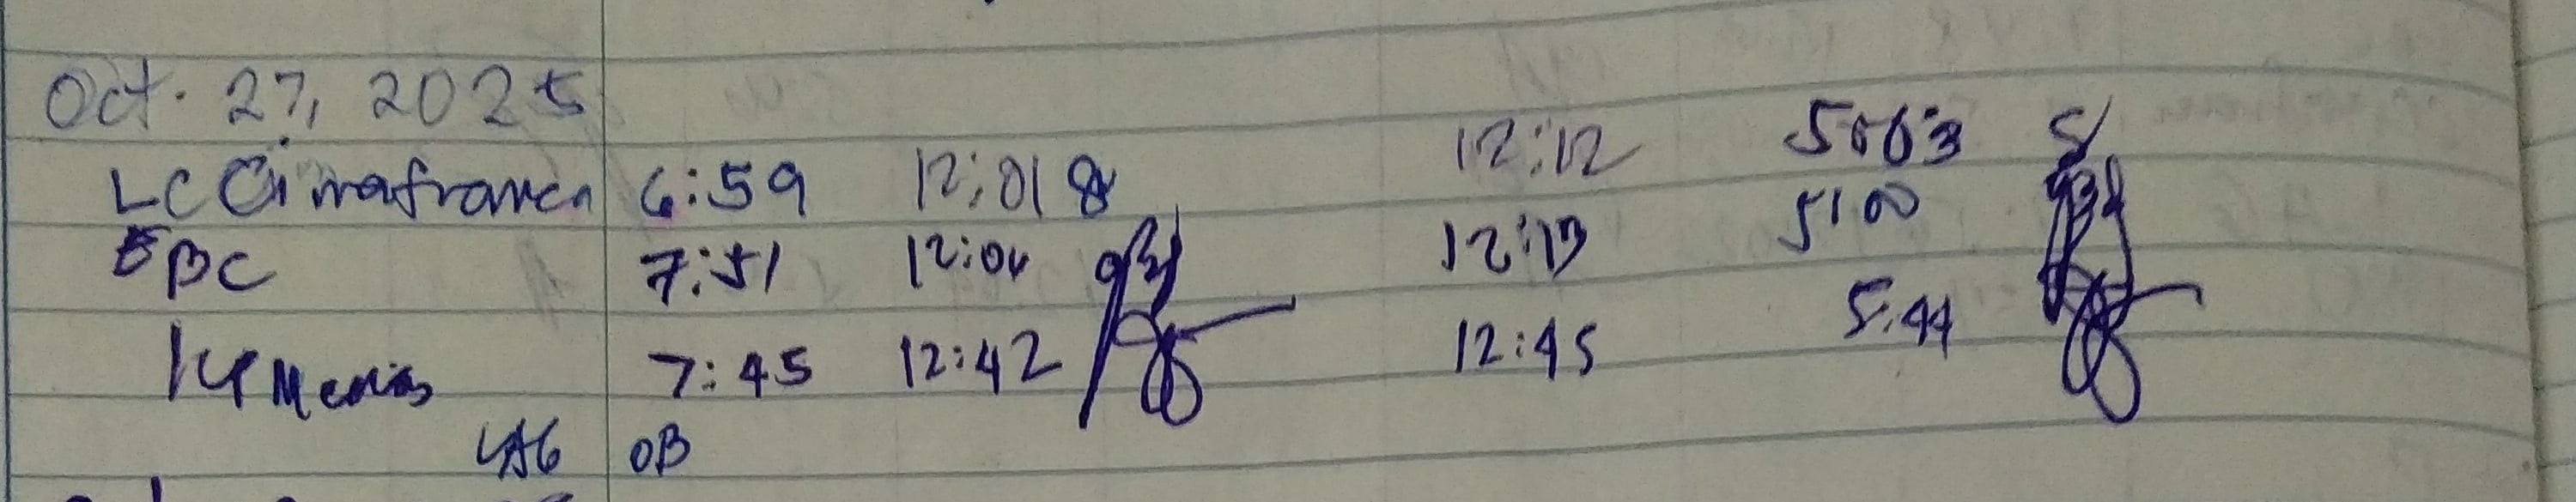 Oct. 27, 2025
LC Cimafranca 6:59 12:01 12:12 5:03
EBC 7:51 12:04 12:13 5:00
7:45 12:42 12:45 5:44
OB